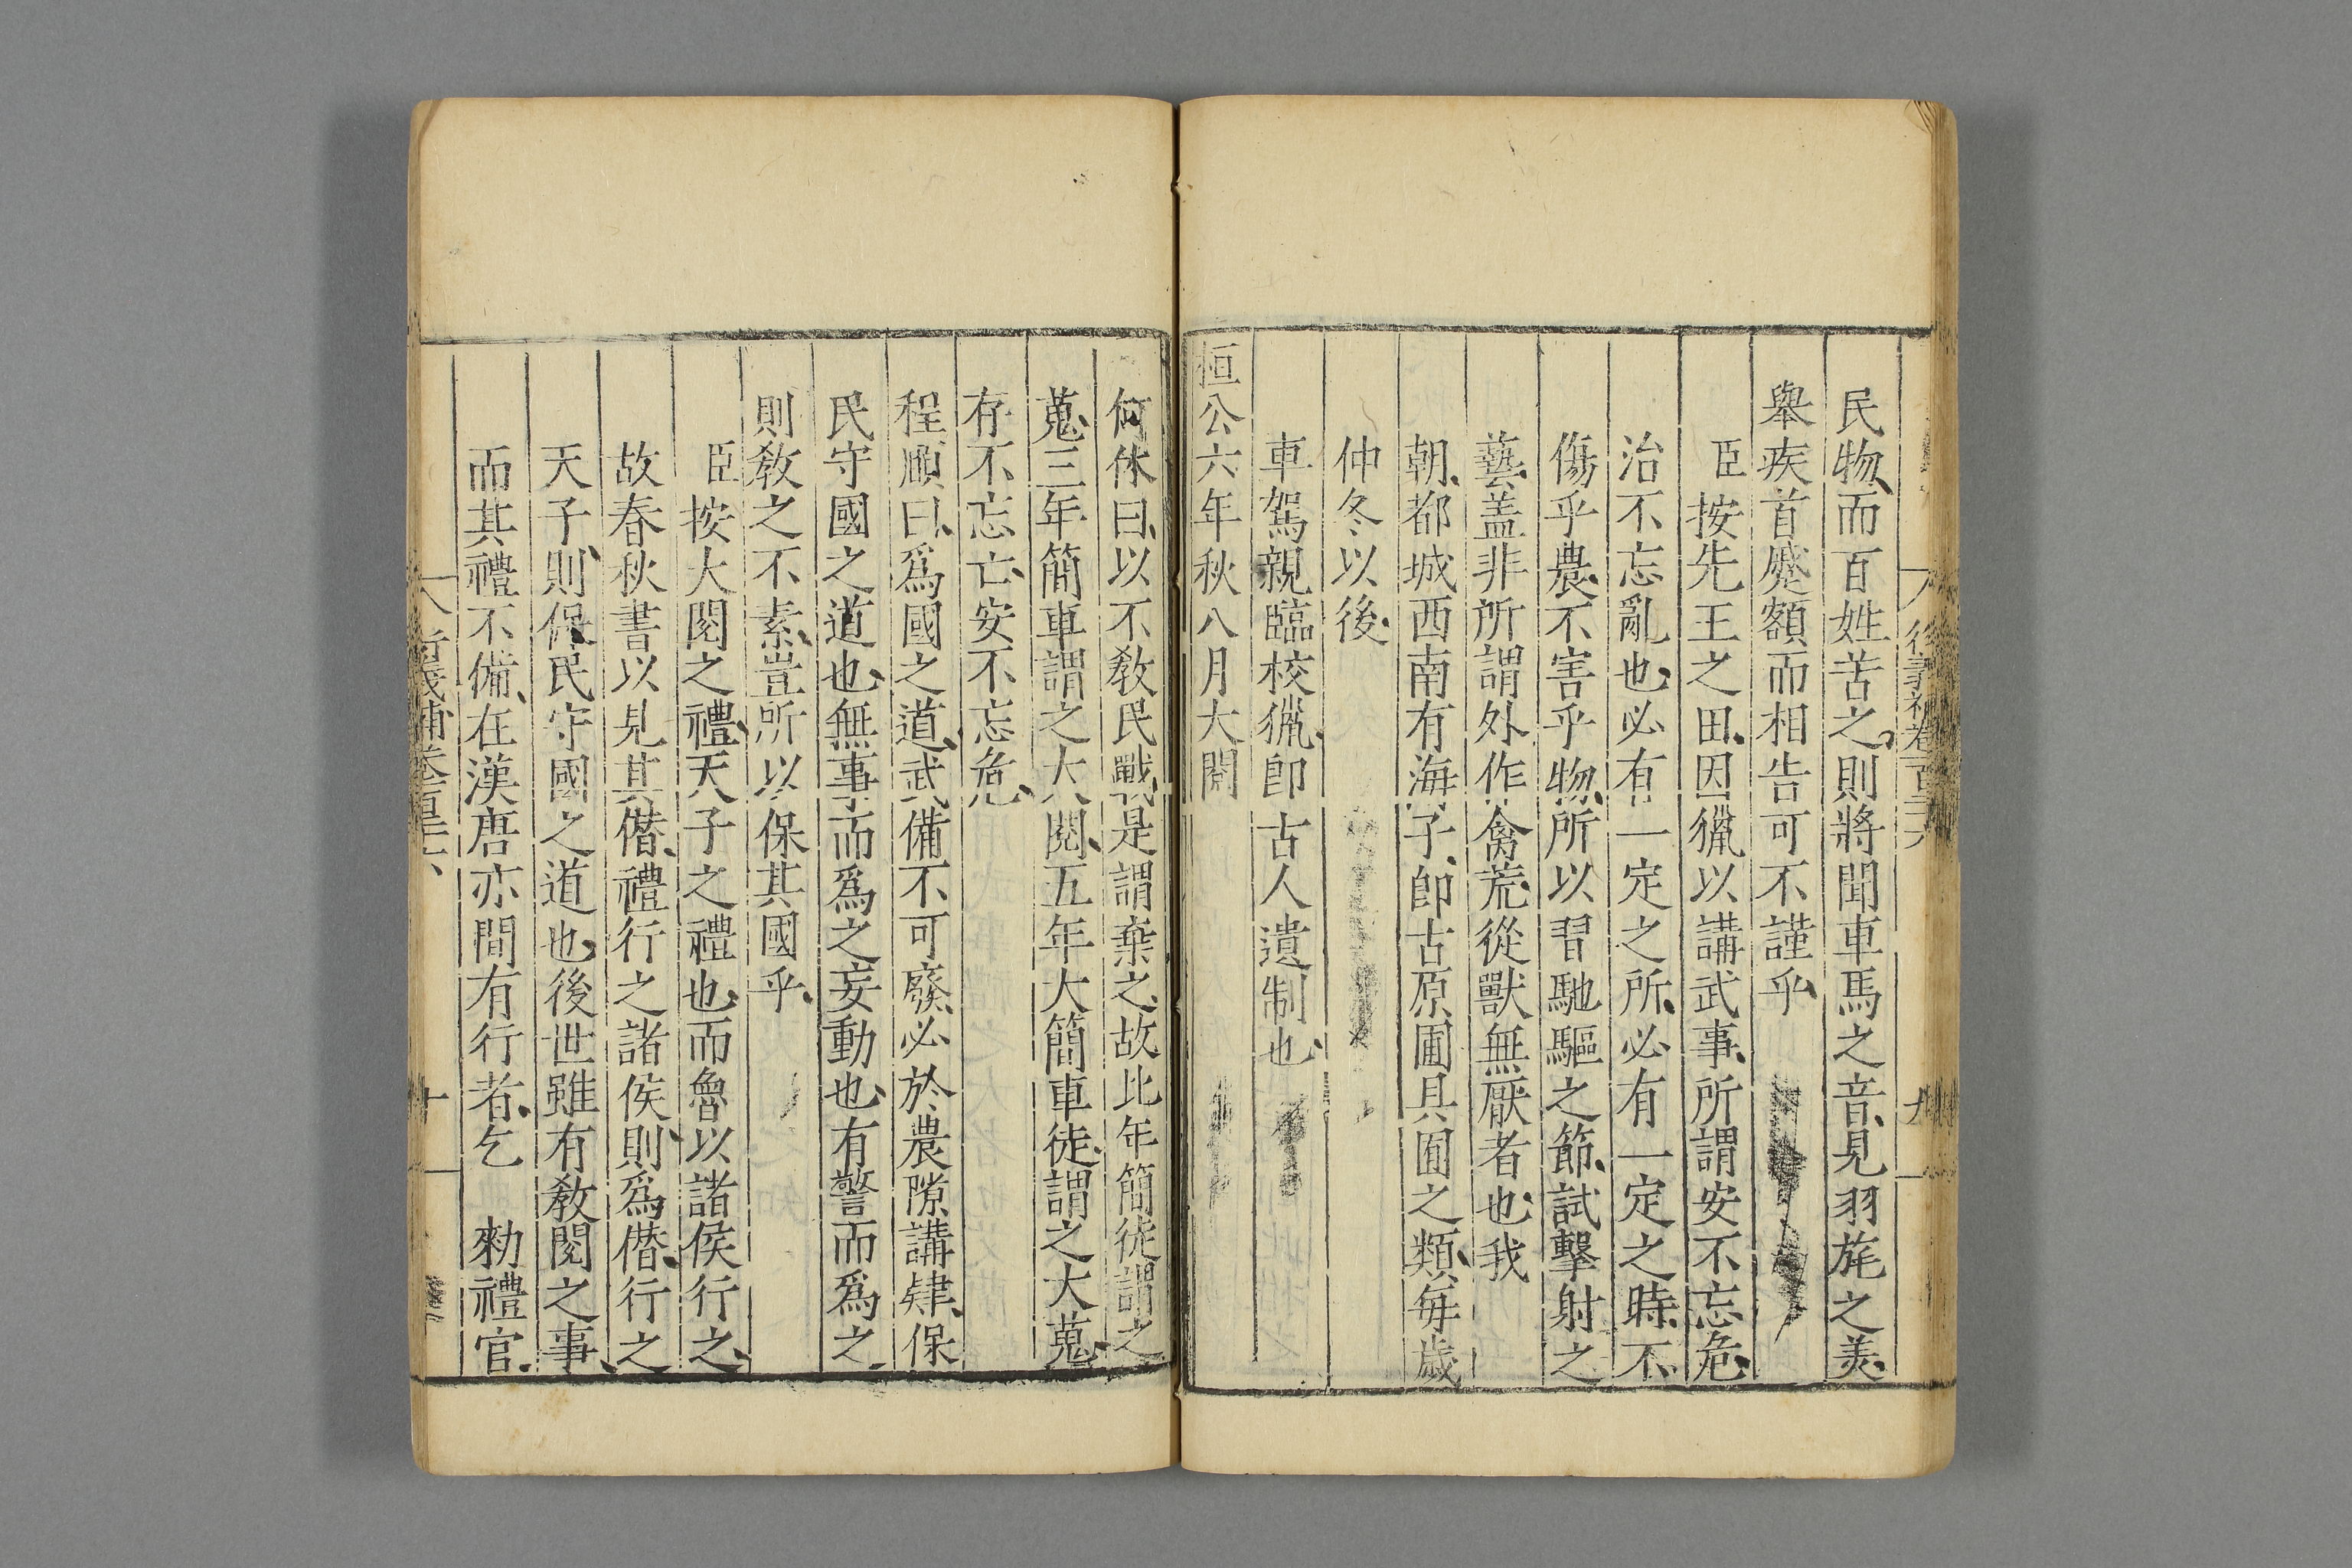 民物、而百姓苦之、則將聞車馬之音、見羽旄之美、
舉疾首蹙額而相告可不謹乎、
臣按先王之田、因獵以講武事、所謂安不忘危、
治不忘亂也、必有一定之所、必有一定之時、不
傷乎農、不害乎物、所以習馳驅之節、試擊射之
藝、盖非所謂外作禽荒、從獸無厭者也、我
朝、都城西南有海子、卽古原圃具囿之類、每歲
仲冬以後、
車駕親臨校獵、卽古人遺制也、
桓公六年秋八月大閱
何休曰、以不敎民戰、是謂棄之、故比年簡徒謂之
蒐、三年簡車謂之大閱、五年大簡車徒、謂之大蒐、
存不忘亡、安不忘危、
程頤曰、爲國之道、武備不可廢、必於農隙講肄、保
民守國之道也、無事而爲之妄動也、有警而爲之、
則敎之不素、豈所以保其國乎、
臣按大閱之禮、天子之禮也、而魯以諸侯行之、
故春秋書以見其僭、禮行之諸侯、則爲僭、行之
天子、則保民守國之道也、後世雖有敎閱之事、
而其禮不備、在漢唐亦間有行者、乞 勑禮官、
衍義補卷百十六 十